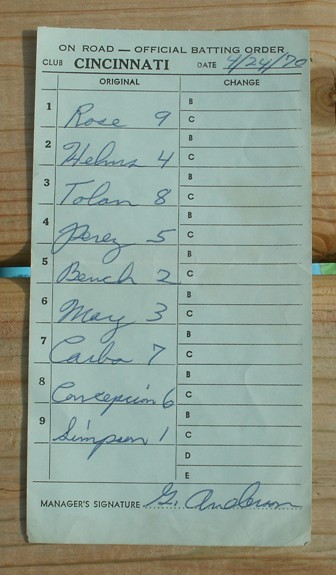 ON ROAD — OFFICIAL BATTING ORDER
CLUB CINCINNATI DATE 4/24/70
ORIGINAL CHANGE
1 Rose 9 B
C
2 Helms 4 B
C
3 Tolan 8 B
C
4 Perez 5 B
C
5 Bench 2 B
C
6 May 3 B
C
7 Carbo 7 B
C
8 Concepcion 6 B
C
9 Simpson 1 B
C
D
E
MANAGER'S SIGNATURE G. Anderson